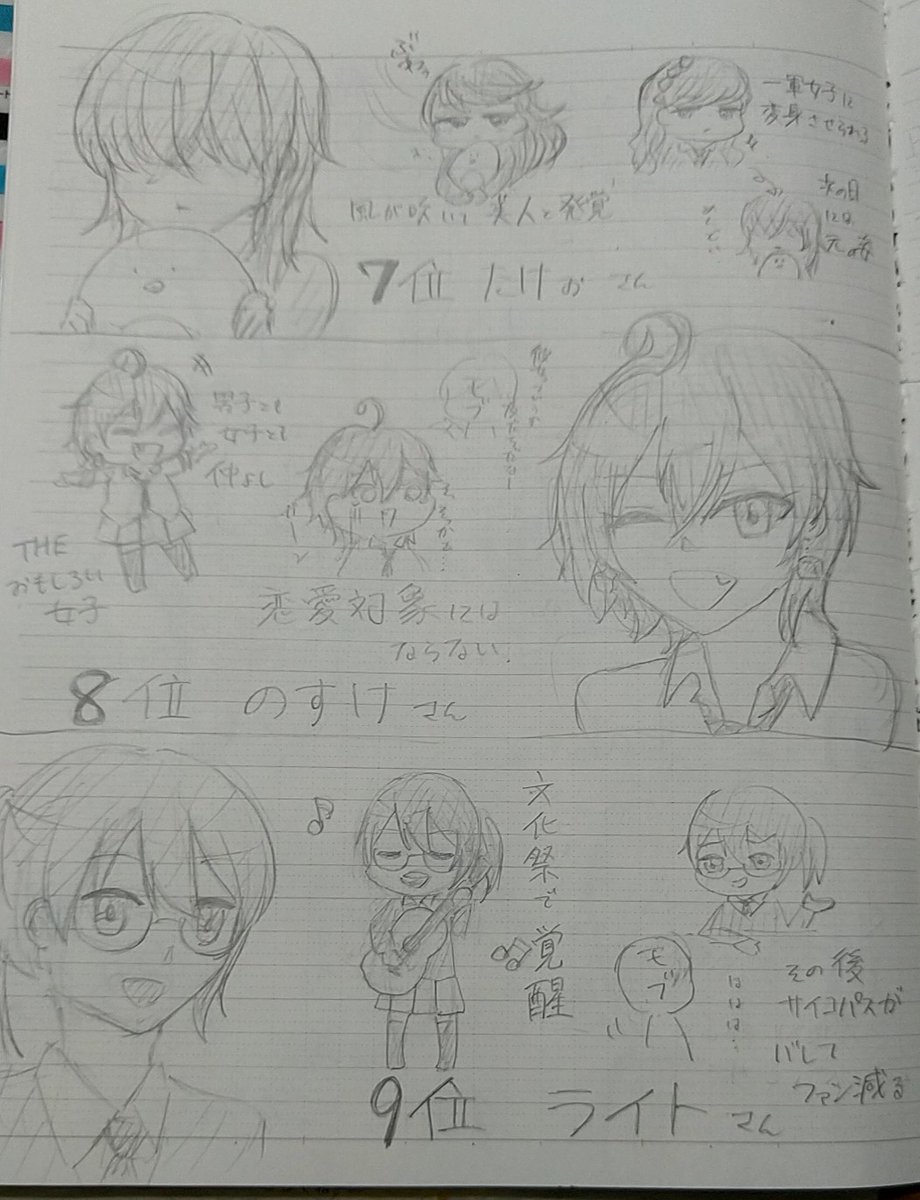 一軍女子に
変身させられる
風が吹いて美人と発覚
次の日
には
元の姿
7位 たけおさん
男子とも
女子とも
仲よし
モブ
THE
おもしろい
女子
恋愛対象には
ならない
8位 のすけさん
文化祭で覚醒
モブ
ははは…
その後
サイコパスが
バレて
ファン減る
9位 ライトさん